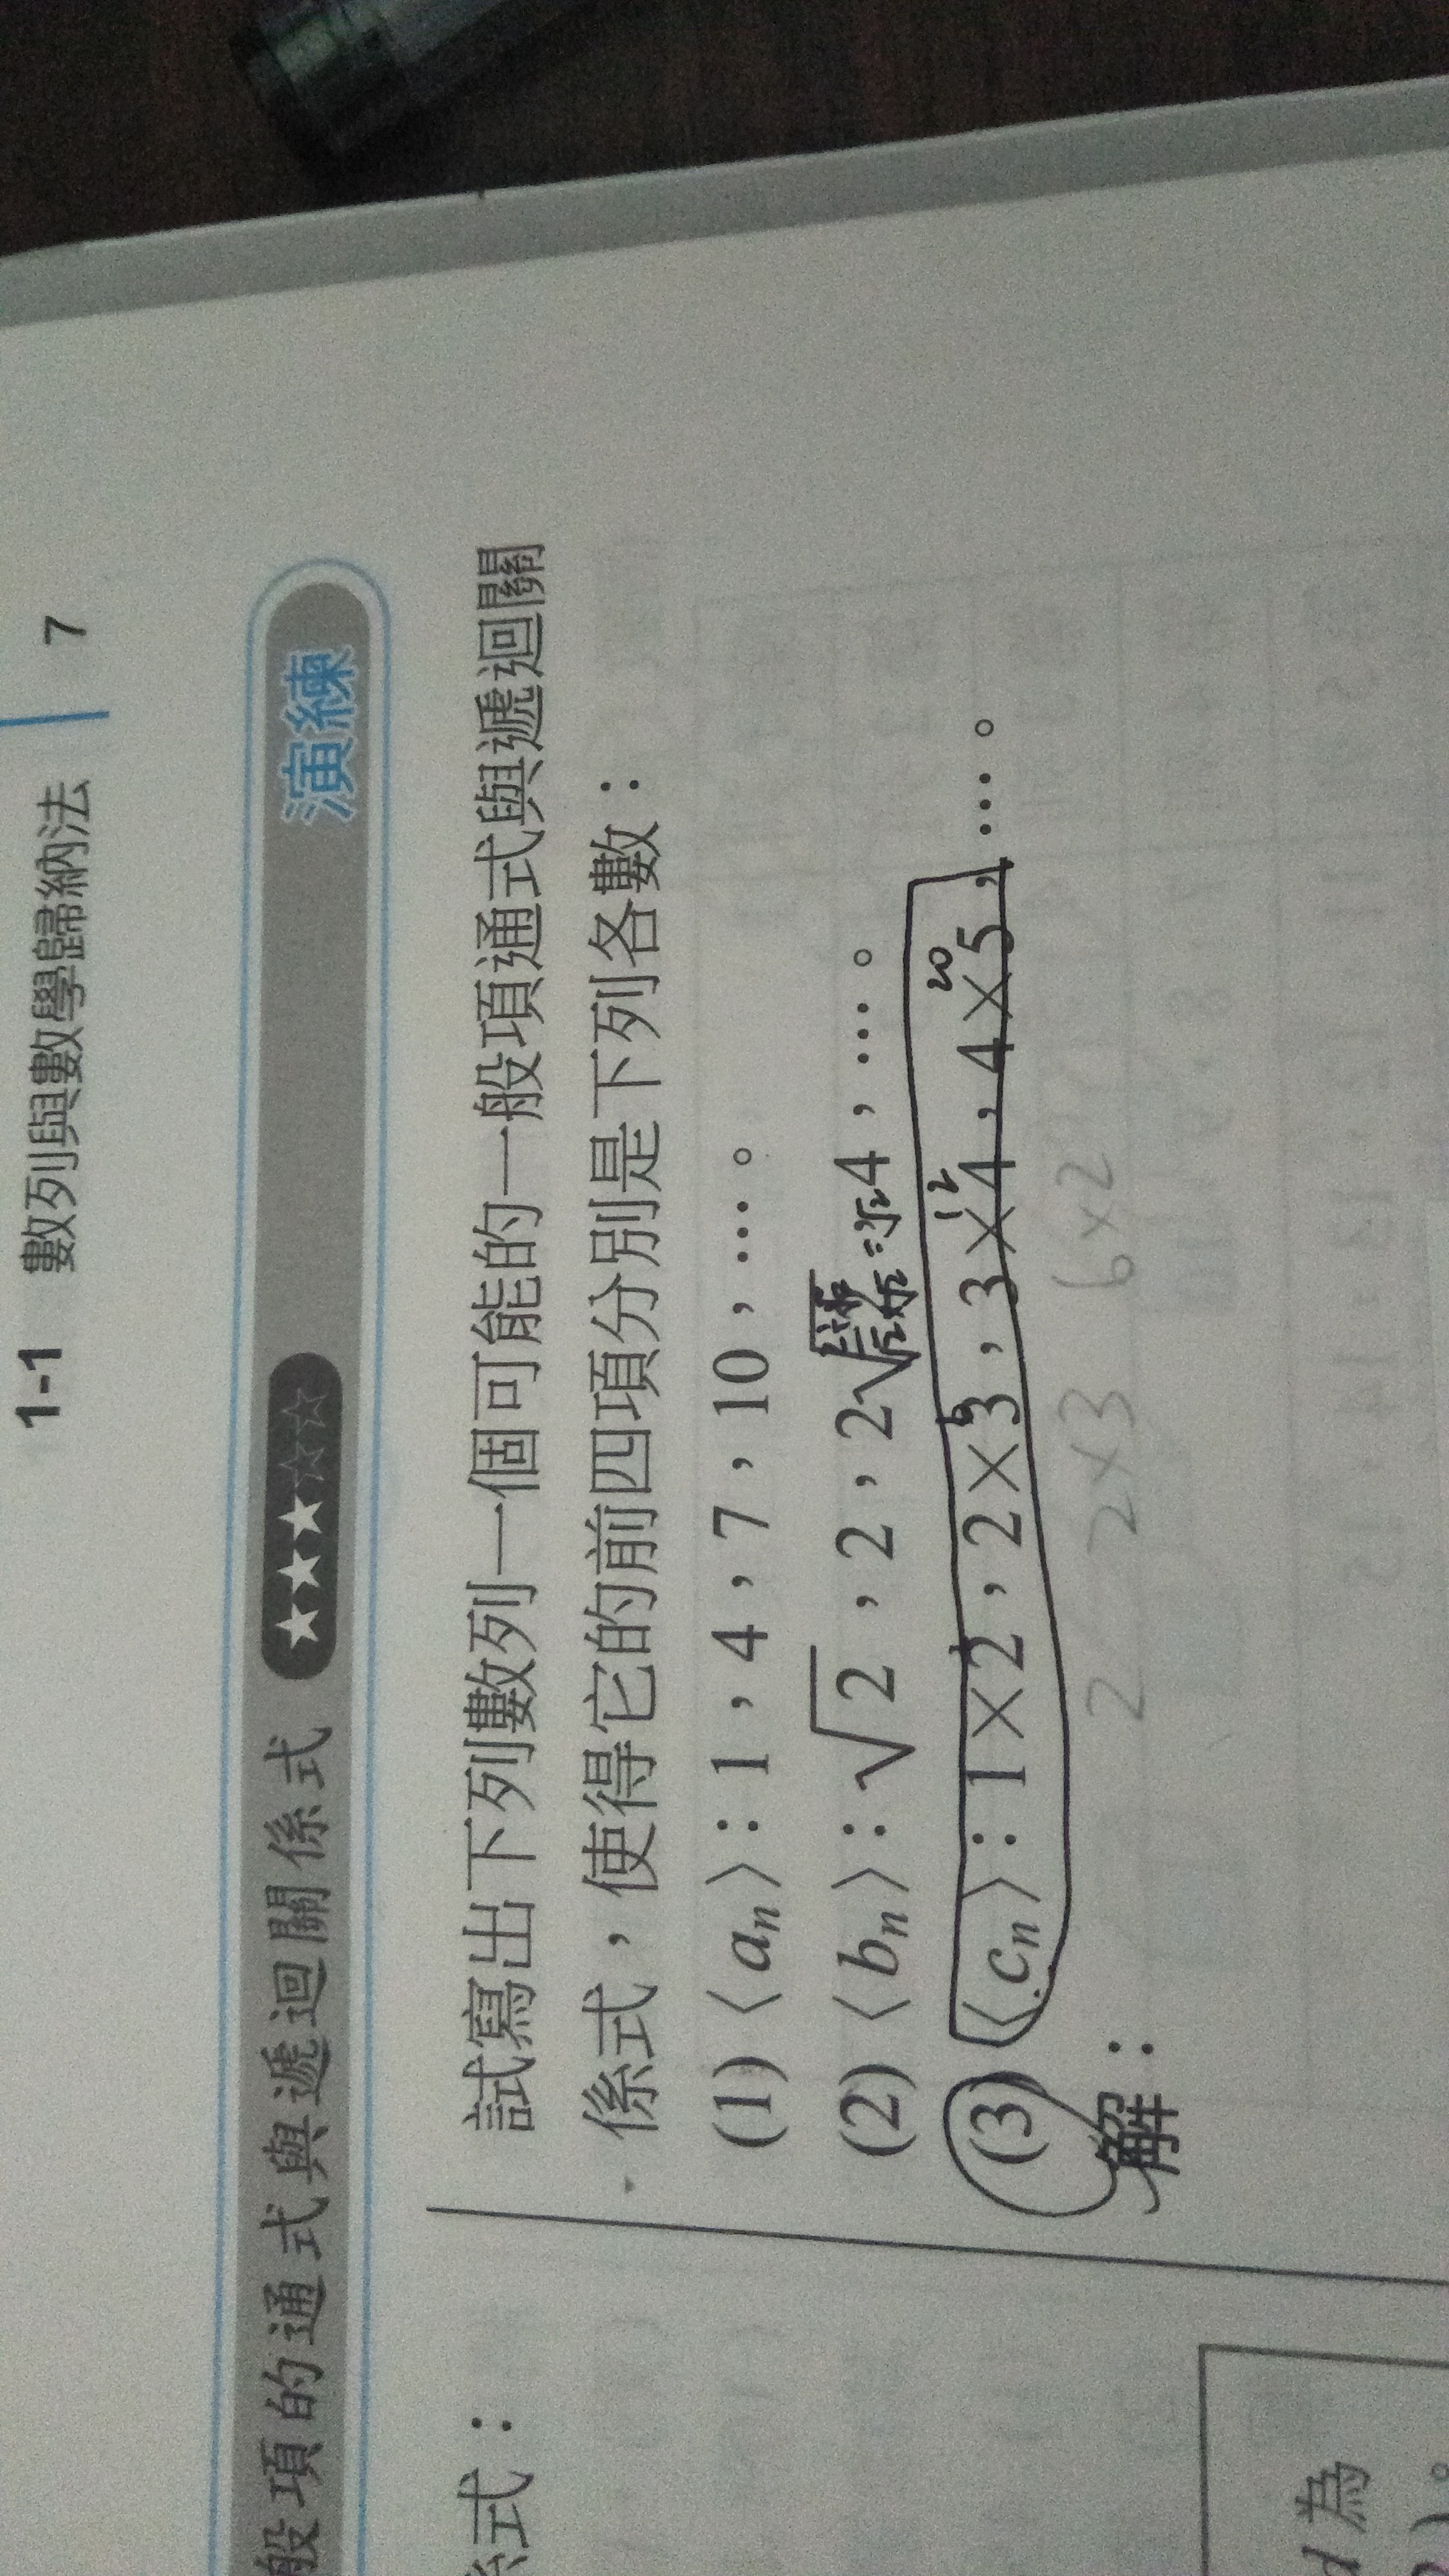 1-1 數列與數學歸納法 7
般項的通式與遞迴關係式 ★★★☆☆ 演練
係式：
試寫出下列數列一個可能的一般項通式與遞迴關
係式，使得它的前四項分別是下列各數：
(1)〈an〉：1，4，7，10，…。
(2)〈bn〉：√2，2，2√2，4，…。
(3)〈cn〉：1×2，2×3，3×4，4×5，…。
6 12 20
2 2×3 6×2
解：
為